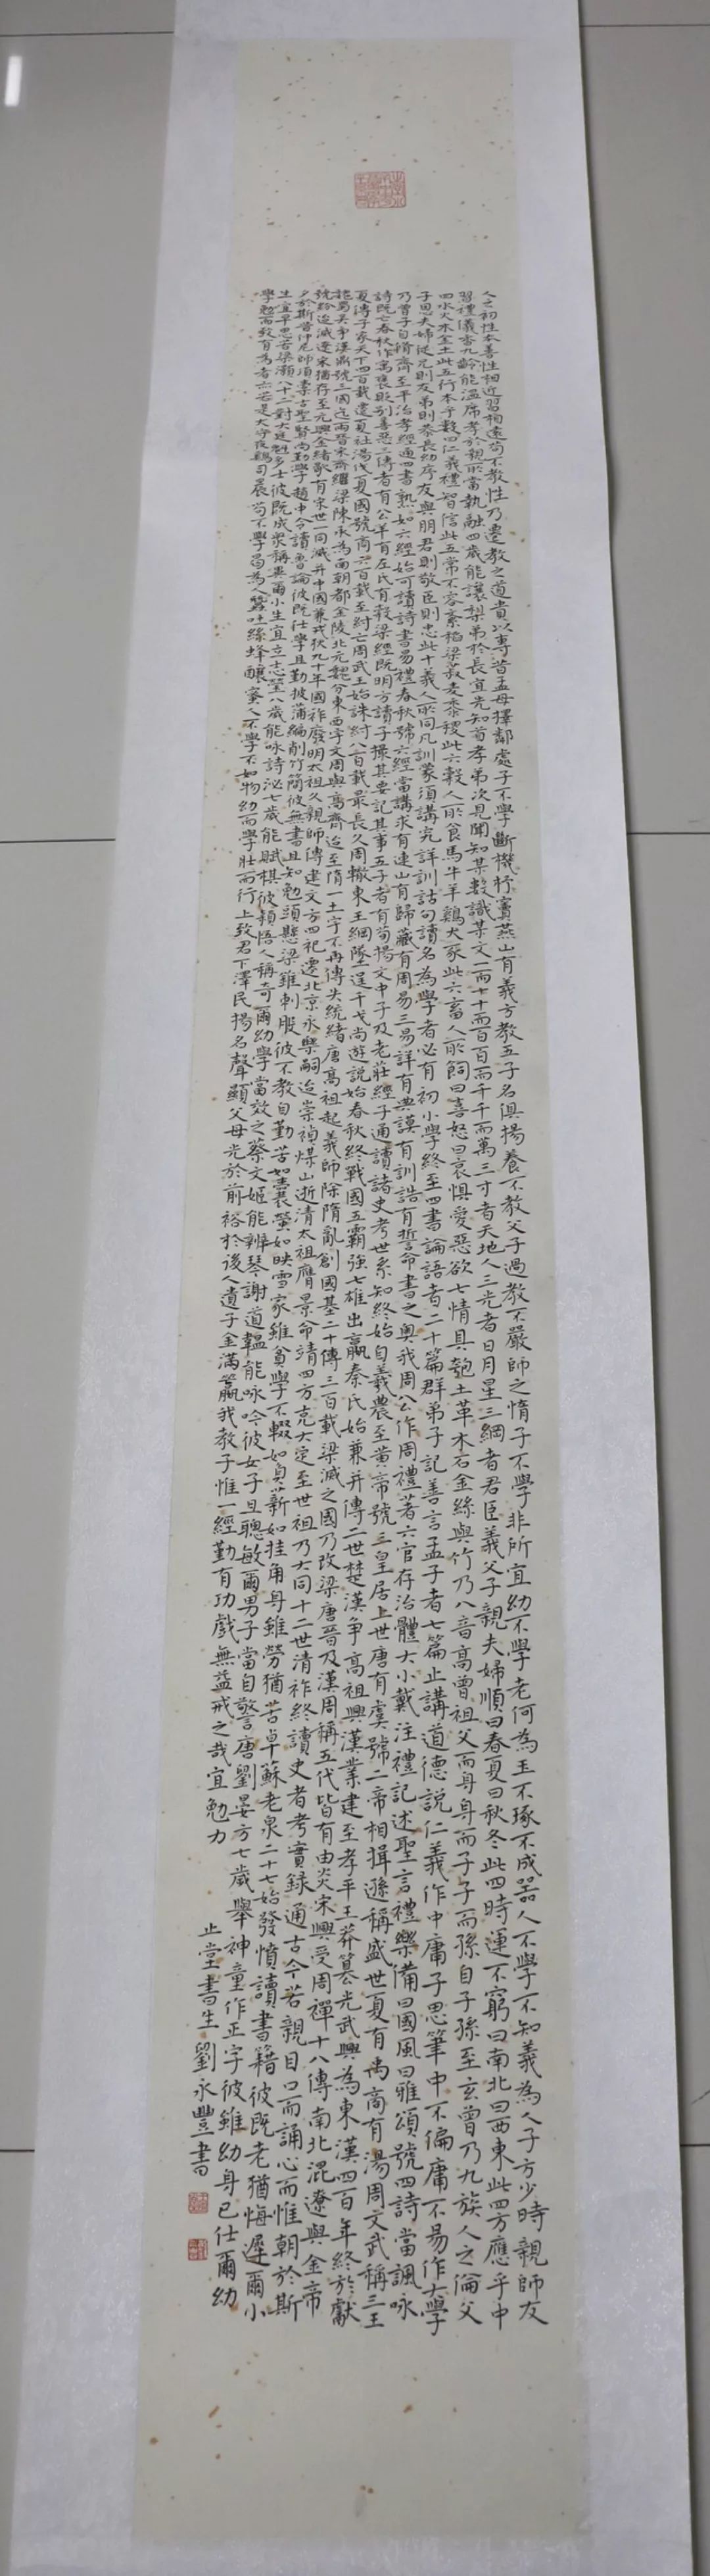 人之初性本善性相近習相遠苟不教性乃遷教之道貴以專昔孟母擇鄰處子不學斷機杼竇燕山有義方教五子名俱揚養不教父子過教不嚴師之惰子不學非所宜幼不學老何為玉不琢不成器人不學不知義為人子方少時親師友
習禮儀香九齡能溫席孝於親所當執融四歲能讓梨弟於長宜先知首孝弟次見聞知某數識某文一而十十而百百而千千而萬三才者天地人三光者日月星三綱者君臣義父子親夫婦順曰春夏曰秋冬此四時運不窮曰南北曰西東此四方應乎中
曰水火木金土此五行本乎數曰仁義禮智信此五常不容紊稻粱菽麥黍稷此六穀人所食馬牛羊雞犬豕此六畜人所飼曰喜怒曰哀懼愛惡欲七情具匏土革木石金絲與竹乃八音高曾祖父而身身而子子而孫自子孫至玄曾乃九族人之倫父
子恩夫婦從兄則友弟則恭長幼序友與朋君則敬臣則忠此十義人所同凡訓蒙須講究詳訓詁句讀名為學者必有初小學終至四書論語者二十篇群弟子記善言孟子者七篇止講道德說仁義作中庸子思筆中不偏庸不易作大學
乃曾子自脩齊至平治孝經通四書熟如六經始可讀詩書易禮春秋號六經當講求有連山有歸藏有周易三易詳有典謨有訓誥有誓命書之奧我周公作周禮著六官存治體大小戴注禮記述聖言禮樂備曰國風曰雅頌號四詩當諷咏
詩既亡春秋作寓褒貶別善惡三傳者有公羊有左氏有穀梁經既明方讀子撮其要記其事五子者有荀揚文中子及老莊經子通讀諸史考世系知終始自羲農至黃帝號三皇居上世唐有虞號二帝相揖遜稱盛世夏有禹商有湯周文武稱三王
夏傳子家天下四百載遷夏社湯伐夏國號商六百載至紂亡周武王始誅紂八百載最長久周轍東王綱墜逞干戈尚遊說始春秋終戰國五霸強七雄出嬴秦氏始兼并傳二世楚漢爭高祖興漢業建至孝平王莽篡光武興為東漢四百年終於獻
魏蜀吳爭漢鼎號三國迄兩晉宋齊繼梁陳承為南朝都金陵北元魏分東西宇文周與高齊迨至隋一土宇不再傳失統緒唐高祖起義師除隋亂創國基二十傳三百載梁滅之國乃改梁唐晉及漢周稱五代皆有由炎宋興受周禪十八傳南北混遼與金帝
號紛迨滅遼宋猶存至元興金緒歇有宋世一同滅并中國兼戎狄九十年國祚廢明太祖久親師傳建文方四祀遷北京永樂嗣迨崇禎煤山逝清太祖膺景命靖四方克大定至世祖乃大同十二世清祚終讀史者考實錄通古今若親目口而誦心而惟朝於斯
夕於斯昔仲尼師項橐古聖賢尚勤學趙中令讀魯論彼既仕學且勤披蒲編削竹簡彼無書且知勉頭懸梁錐刺股彼不教自勤苦如囊螢如映雪家雖貧學不輟如負薪如挂角身雖勞猶苦卓蘇老泉二十七始發憤讀書籍彼既老猶悔遲爾小
生宜早思若梁灝八十二對大廷魁多士彼既成眾稱異爾小生宜立志瑩八歲能咏詩泌七歲能賦棋彼穎悟人稱奇爾幼學當效之蔡文姬能辨琴謝道韞能咏吟彼女子且聰敏爾男子當自警唐劉晏方七歲舉神童作正字彼雖幼身已仕爾幼
學勉而致有為者亦若是犬守夜雞司晨苟不學曷為人蠶吐絲蜂釀蜜人不學不如物幼而學壯而行上致君下澤民揚名聲顯父母光於前裕於後人遺子金滿籯我教子惟一經勤有功戲無益戒之哉宜勉力
止堂書生劉永豐書